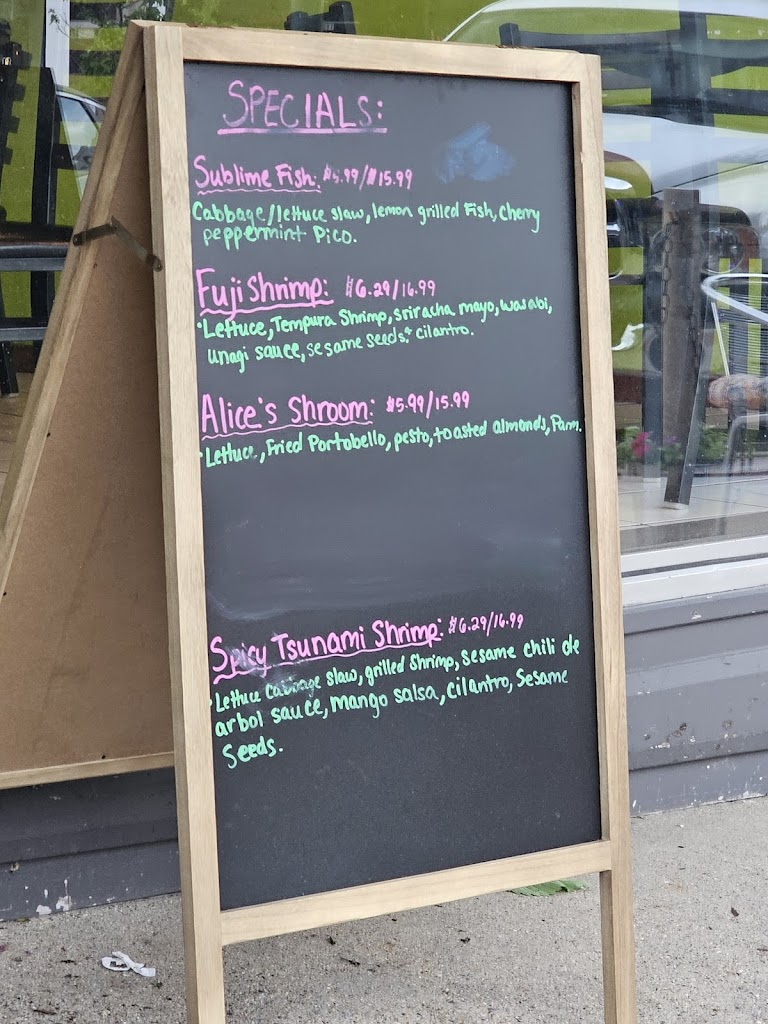 SPECIALS:
Sublime Fish: $5.99/$15.99
Cabbage/lettuce slaw, lemon grilled Fish, Cherry
peppermint Pico.
Fuji Shrimp: $6.29/16.99
Lettuce, Tempura Shrimp, sriracha mayo, wasabi,
unagi sauce, sesame seeds, + cilantro.
Alice's Shroom: $5.99/15.99
Lettuce, Fried Portobello, pesto, toasted almonds, Parm.
Spicy Tsunami Shrimp: $6.29/16.99
Lettuce cabbage slaw, grilled Shrimp, sesame chili de
arbol sauce, mango salsa, cilantro, Sesame
Seeds.